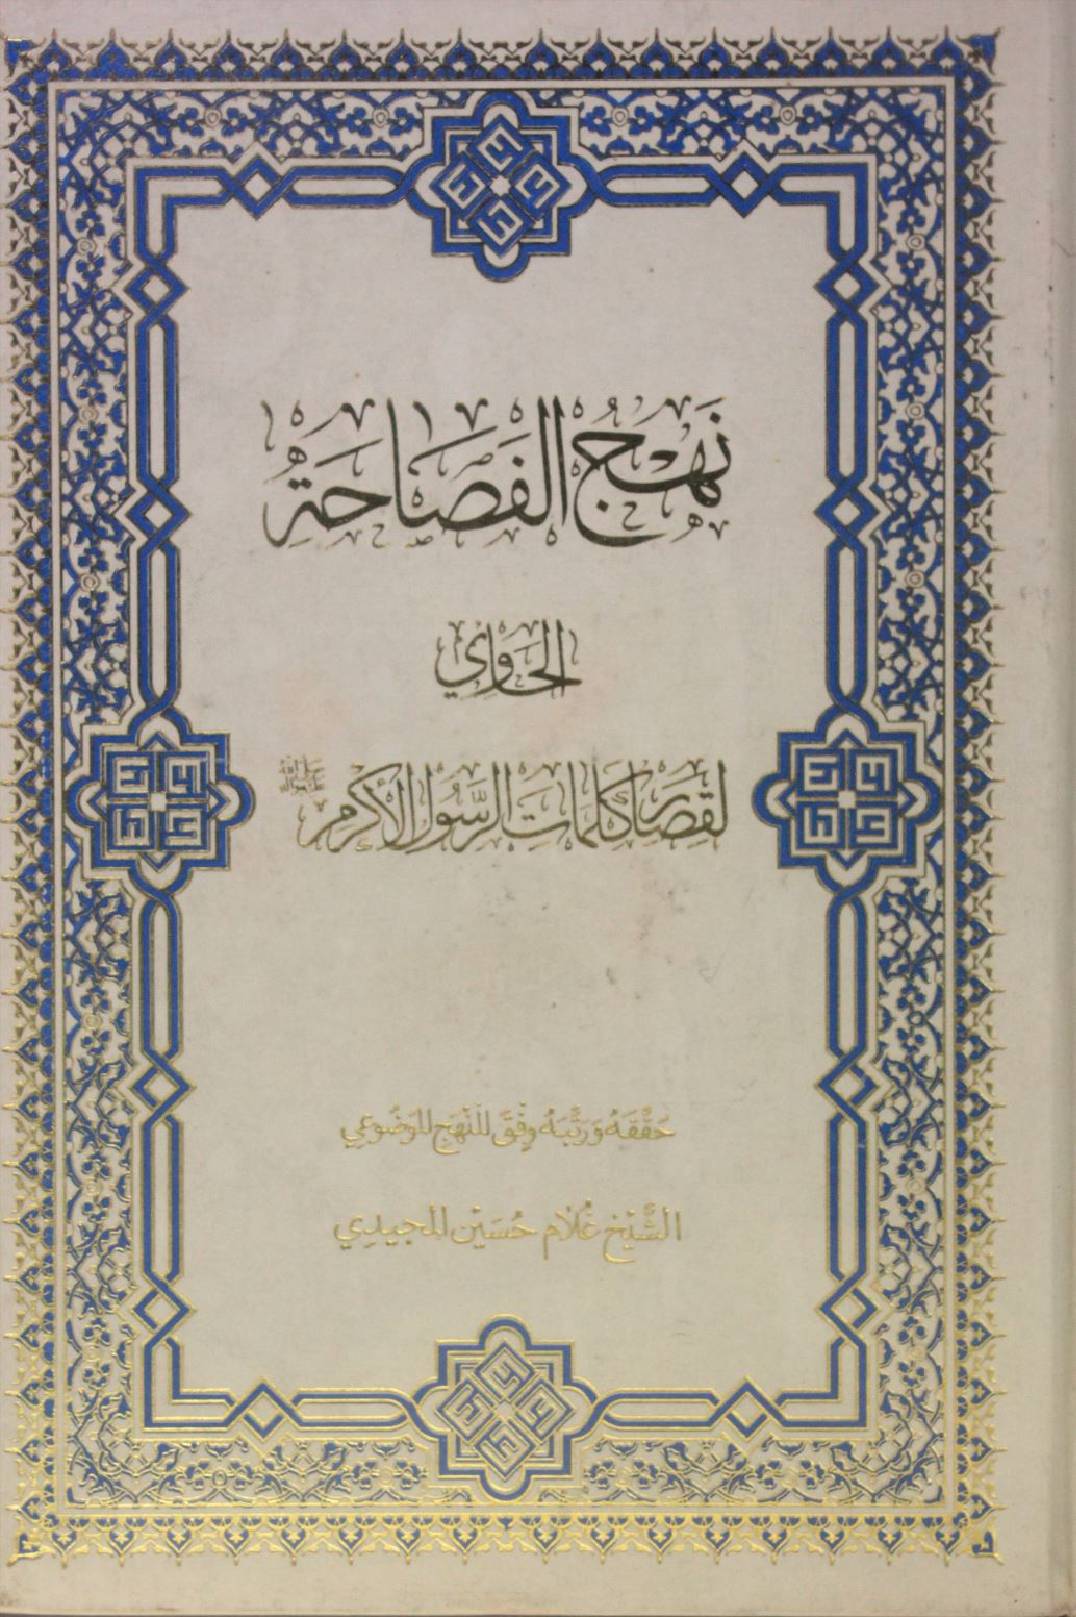 نَهْجُ الفَصَاحَةِ
الحَاوِي
لِقِصَارِ كَلِمَاتِ الرَّسُولِ الأَكْرَمِ ﷺ
حَقَّقَهُ وَرَتَّبَهُ وِفْقَ المَنْهَجِ المَوْضُوعِي
الشَّيْخ غُلَام حُسَيْن المَجِيدِي